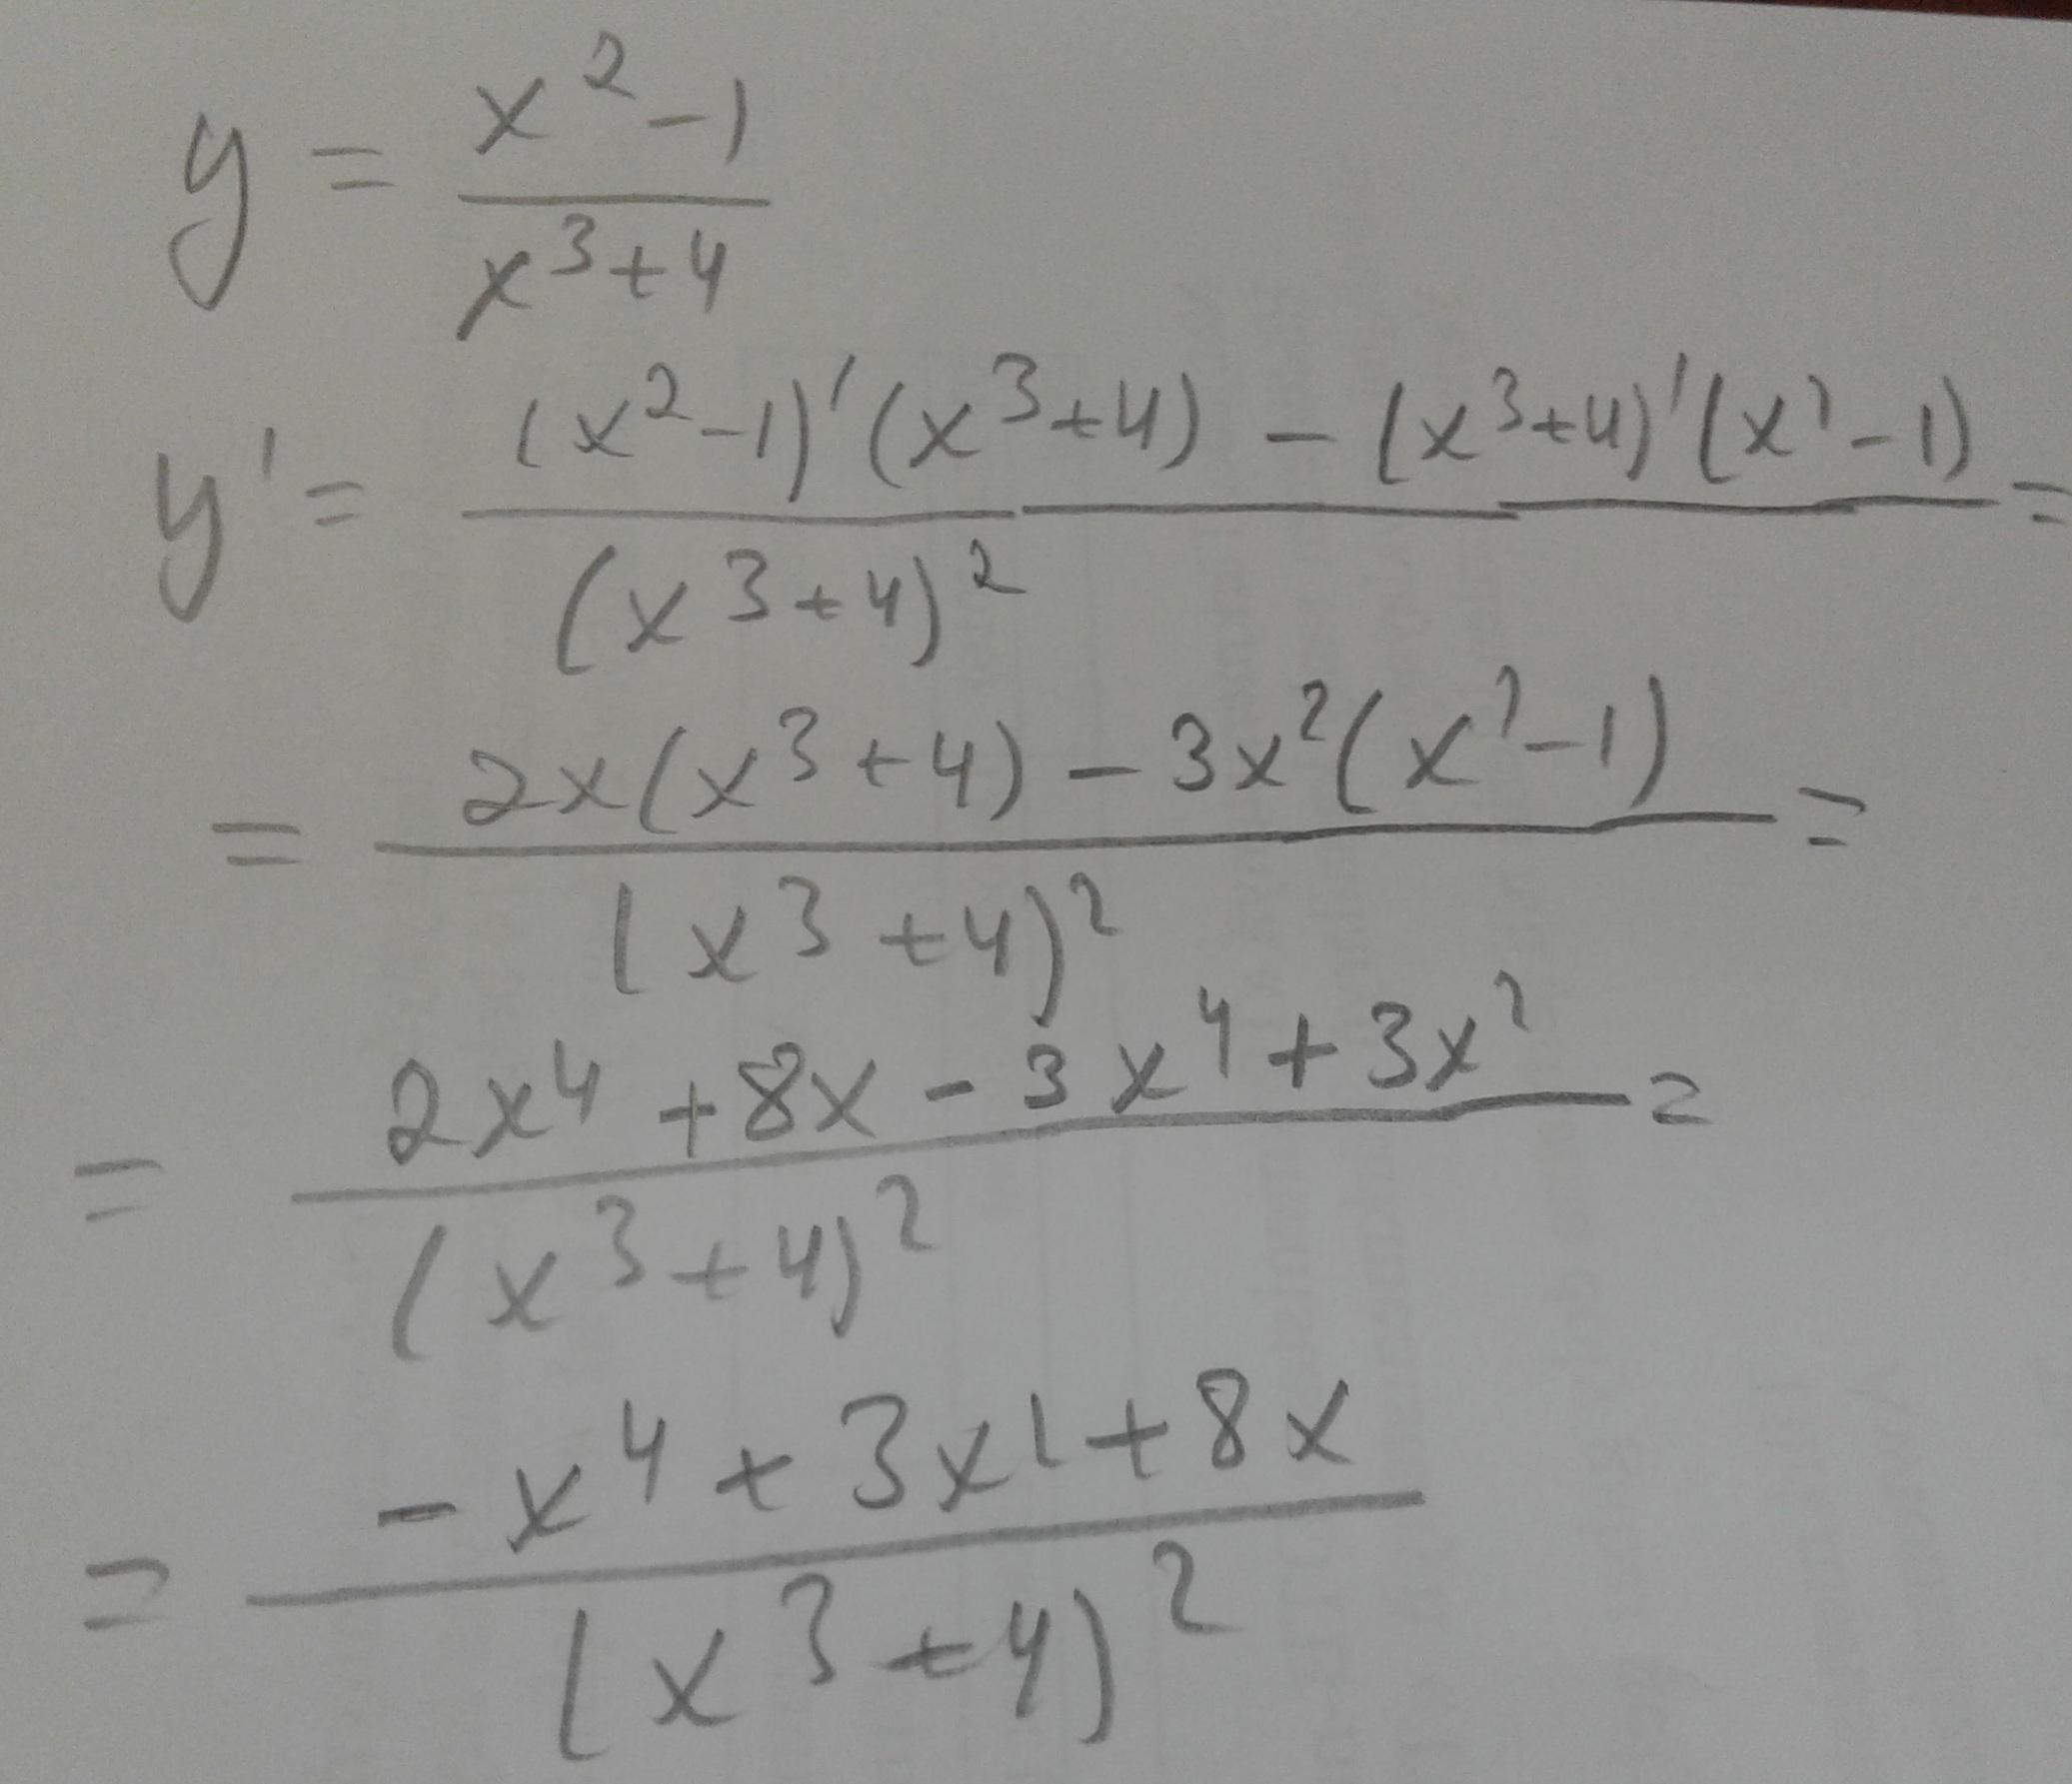 y = (x² - 1) / (x³ + 4)
y' = ((x² - 1)'(x³ + 4) - (x³ + 4)'(x² - 1)) / (x³ + 4)² =
= (2x(x³ + 4) - 3x²(x² - 1)) / (x³ + 4)² =
= (2x⁴ + 8x - 3x⁴ + 3x²) / (x³ + 4)² =
= (-x⁴ + 3x² + 8x) / (x³ + 4)²